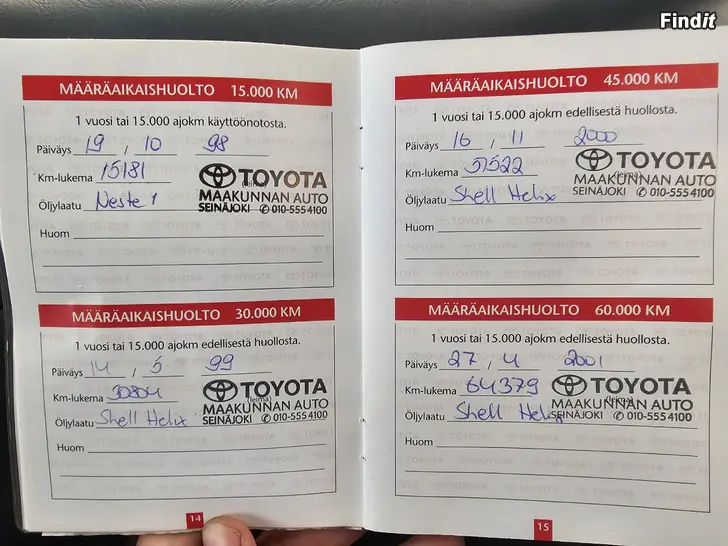 Findit
MÄÄRÄAIKAISHUOLTO 15.000 KM
1 vuosi tai 15.000 ajokm käyttöönotosta.
Päiväys 19 , 10 98
Km-lukema 15181
Öljylaatu Neste 1
(leima)
TOYOTA
MAAKUNNAN AUTO
SEINÄJOKI ✆ 010-555 4100
Huom
MÄÄRÄAIKAISHUOLTO 30.000 KM
1 vuosi tai 15.000 ajokm edellisestä huollosta.
Päiväys 14 , 5 99
Km-lukema 30804
Öljylaatu Shell Helix
(leima)
TOYOTA
MAAKUNNAN AUTO
SEINÄJOKI ✆ 010-555 4100
Huom
14
MÄÄRÄAIKAISHUOLTO 45.000 KM
1 vuosi tai 15.000 ajokm edellisestä huollosta.
Päiväys 16 , 11 2000
Km-lukema 51522
Öljylaatu Shell Helix
(leima)
TOYOTA
MAAKUNNAN AUTO
SEINÄJOKI ✆ 010-555 4100
Huom
MÄÄRÄAIKAISHUOLTO 60.000 KM
1 vuosi tai 15.000 ajokm edellisestä huollosta.
Päiväys 27 , 4 2001
Km-lukema 64379
Öljylaatu Shell Helix
(leima)
TOYOTA
MAAKUNNAN AUTO
SEINÄJOKI ✆ 010-555 4100
Huom
15